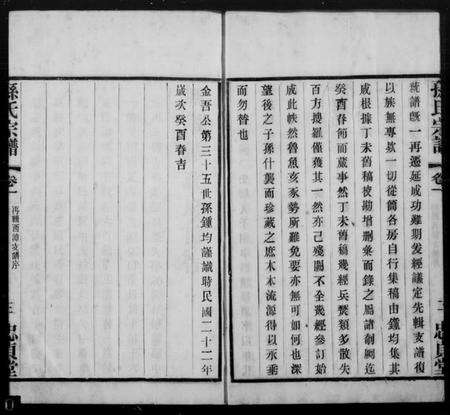 孫氏宗譜
卷一
就譜啟一再遷延成功難期爰經議定先輯支譜復
以族無專欵一切從簡各房自行集稿由鍾均集其
成根據丁未舊稿校勘增刪彙而錄之屬諸剞劂迄
癸酉春節而蕆事然丁未舊稿幾經兵燹類多散失
百方搜羅僅獲其一然亦已殘闕不全幾經參訂始
成此帙然魯魚亥豕勢所難免要亦無可如何也深
望後之子孫什襲而珍藏之庶木本流源得以永垂
而勿替也
二
忠貞堂
金吾公第三十五世孫鍾均謹識時民國二十二年
歲次癸酉春吉
孫氏宗譜
卷一
三
忠貞堂